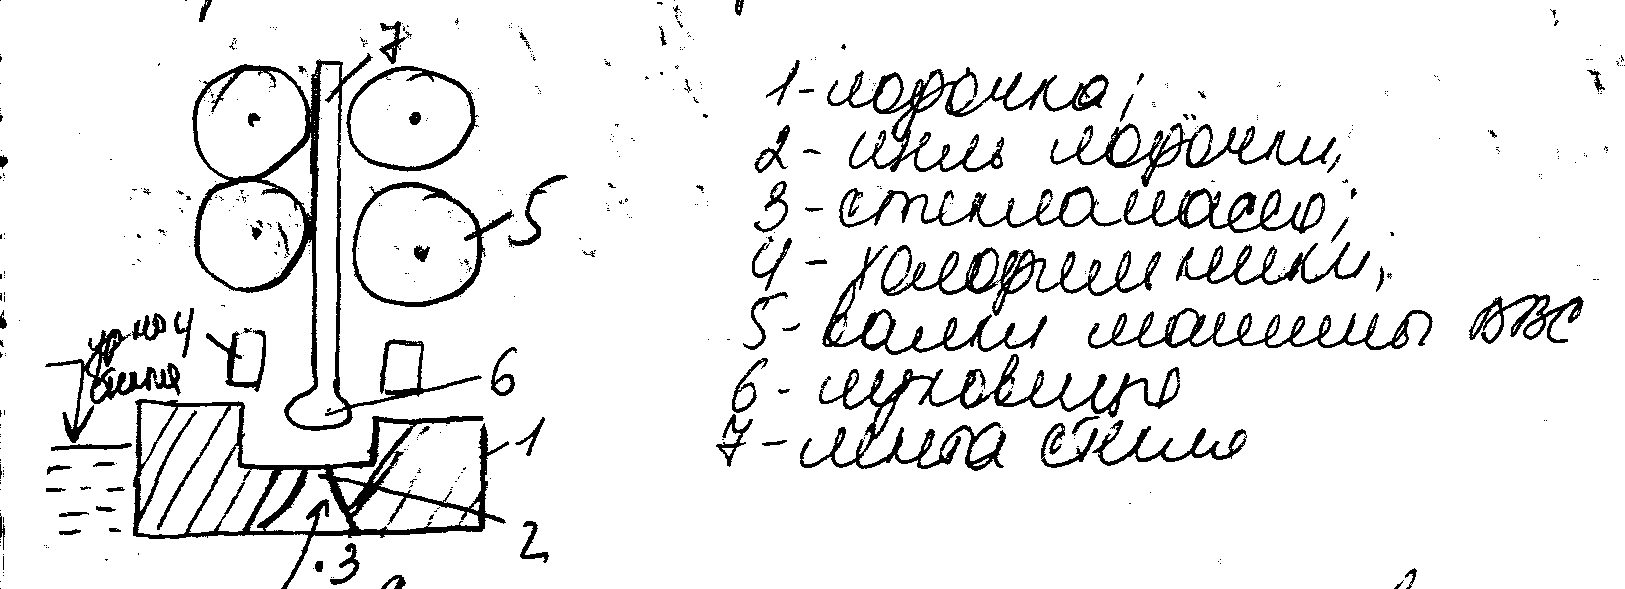 7
5
ур-нь
4
стекла
6
1
2
3
1-лодочка;
2- щель лодочки;
3-стекломасса;
4- холодильники;
5- валки машины ВВС
6- луковица
7- лента стекла